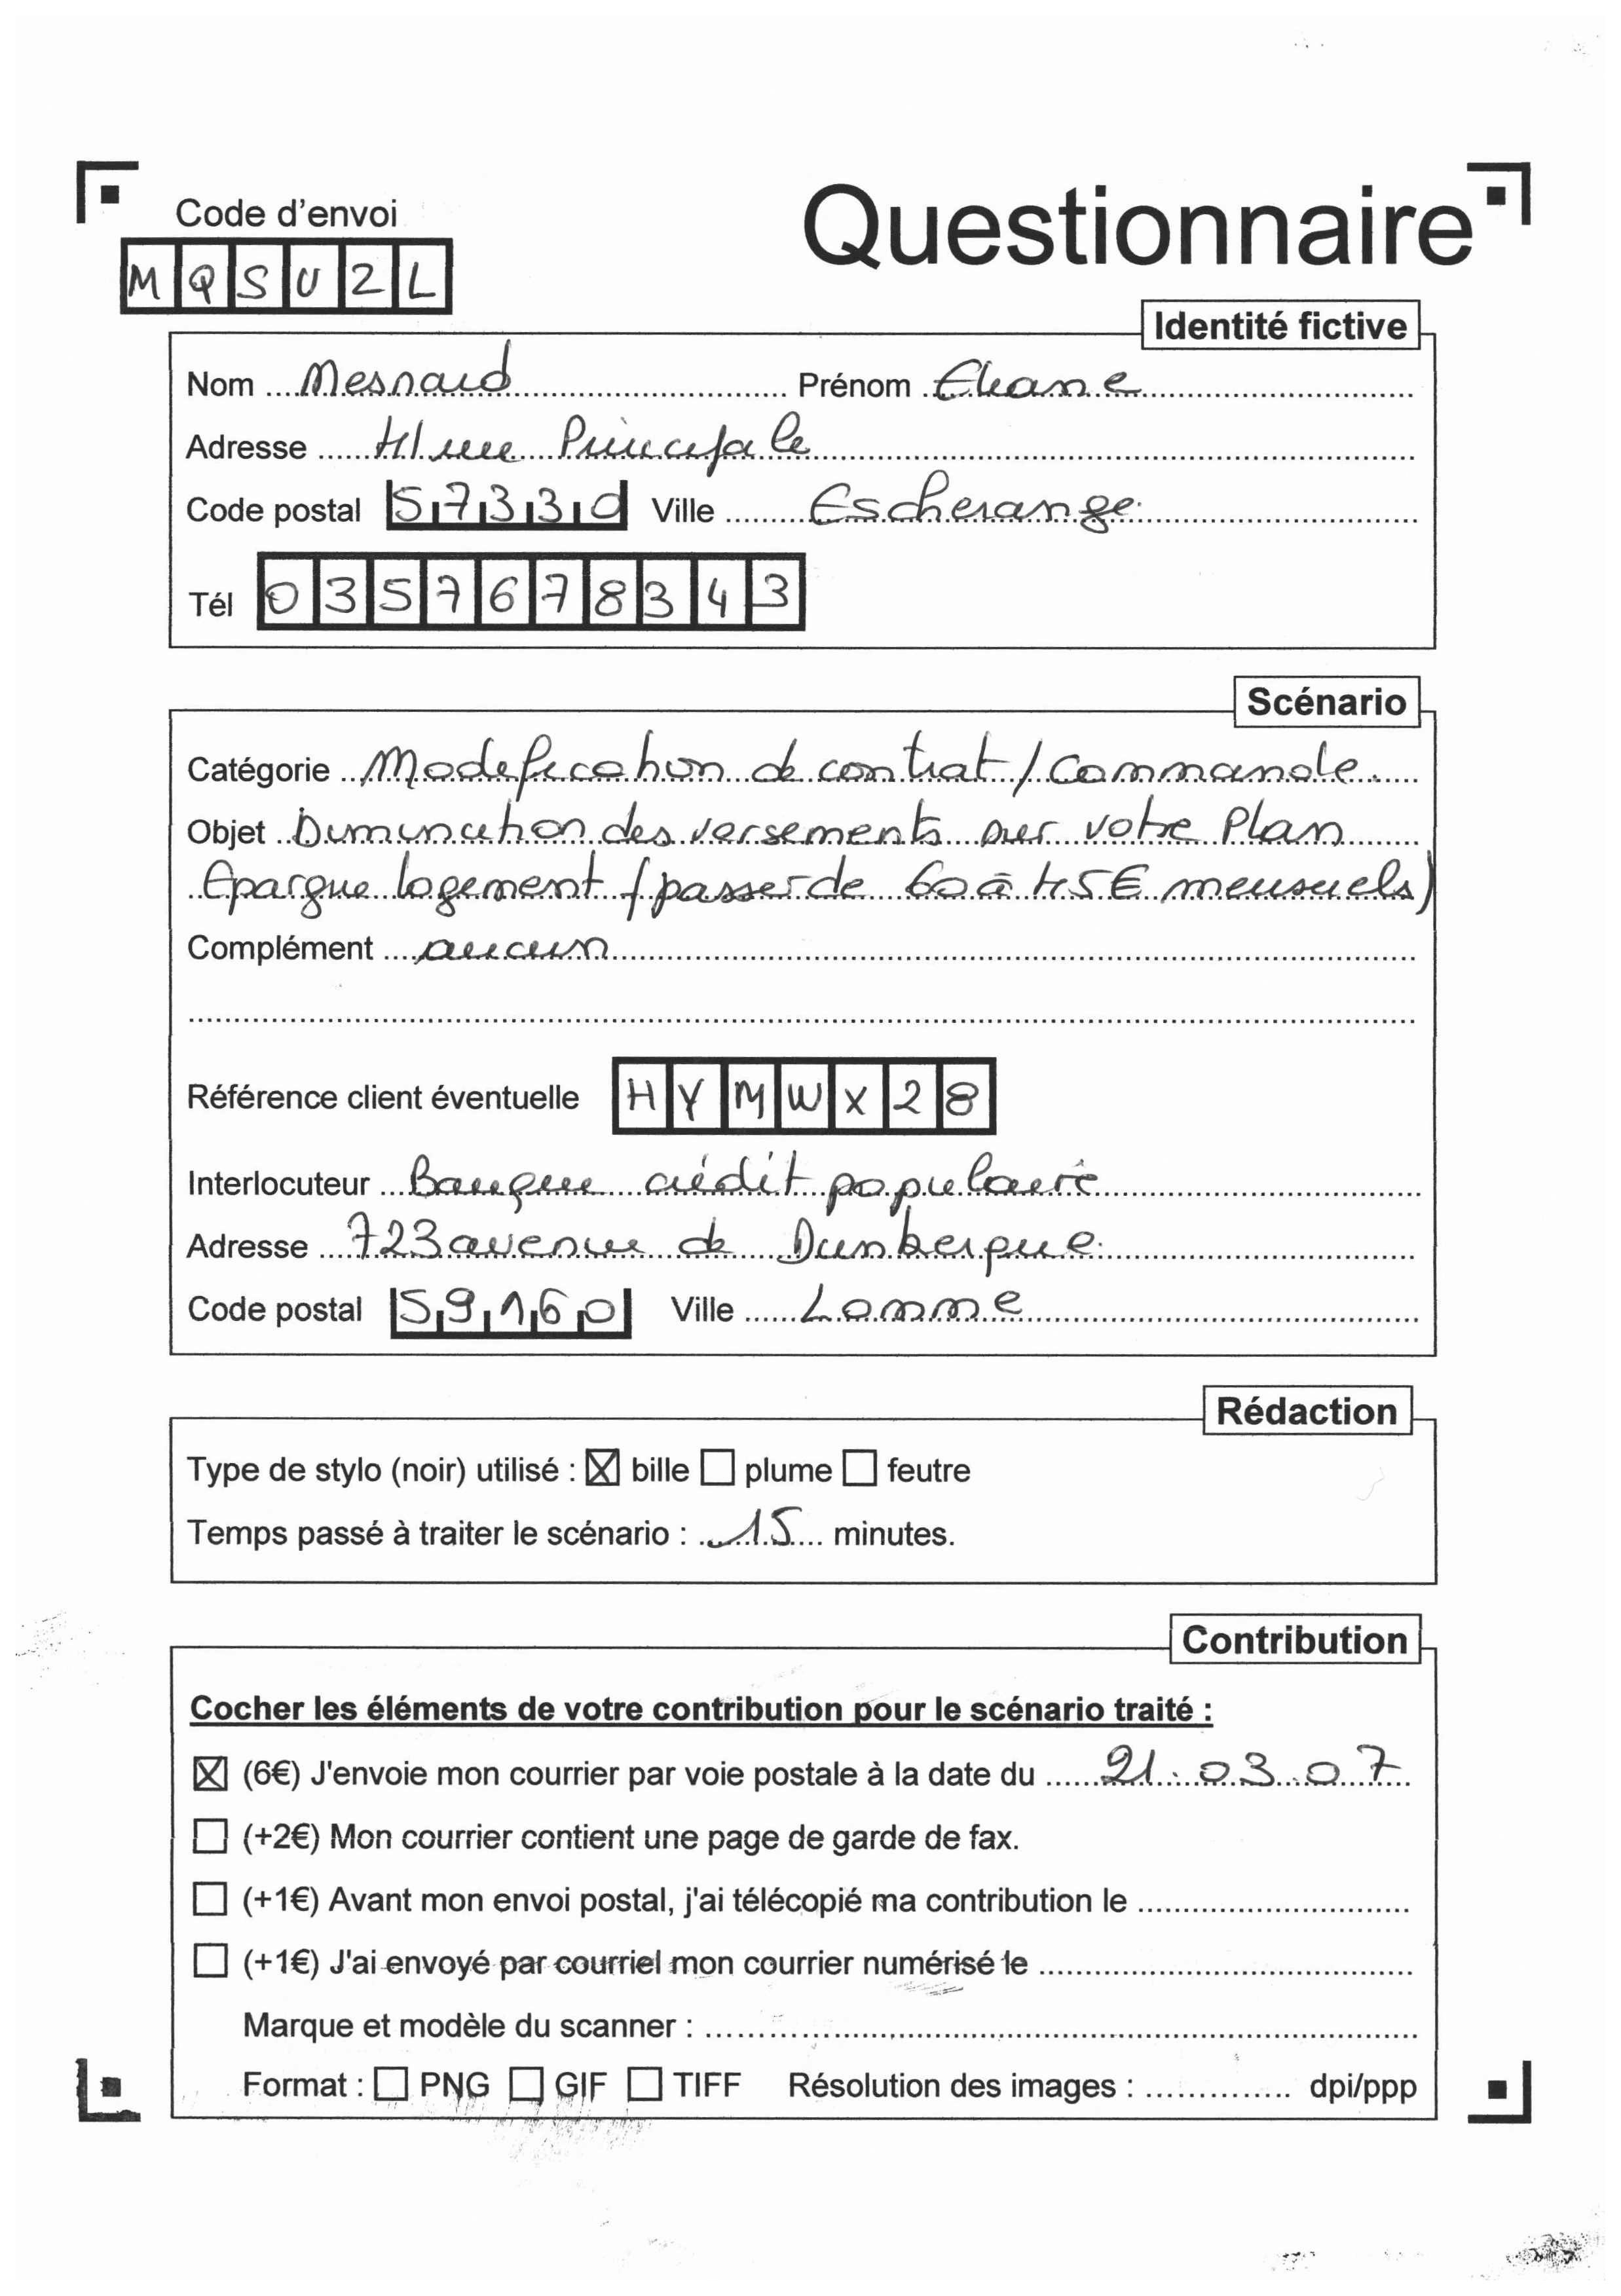 Code d'envoi
Questionnaire
MQSUZL
Identité fictive
Nom Mesnard Prénom Eliane
Adresse 41 rue Principale
Code postal 57330 Ville Escherange
Tél 0357678343
Scénario
Catégorie Modification de contrat / Commande.
Objet Diminution des versements sur votre Plan
Epargne logement (passer de 60 à 45€ mensuels)
Complément aucun
Référence client éventuelle HYMWX28
Interlocuteur Banque crédit populaire
Adresse 723 avenue de Dunkerque.
Code postal 59160 Ville Lomme
Rédaction
Type de stylo (noir) utilisé : ☒ bille ☐ plume ☐ feutre
Temps passé à traiter le scénario : 15 minutes.
Contribution
Cocher les éléments de votre contribution pour le scénario traité :
☒ (6€) J'envoie mon courrier par voie postale à la date du 21.03.07
☐ (+2€) Mon courrier contient une page de garde de fax.
☐ (+1€) Avant mon envoi postal, j'ai télécopié ma contribution le
☐ (+1€) J'ai envoyé par courriel mon courrier numérisé le
Marque et modèle du scanner :
Format : ☐ PNG ☐ GIF ☐ TIFF Résolution des images : dpi/ppp